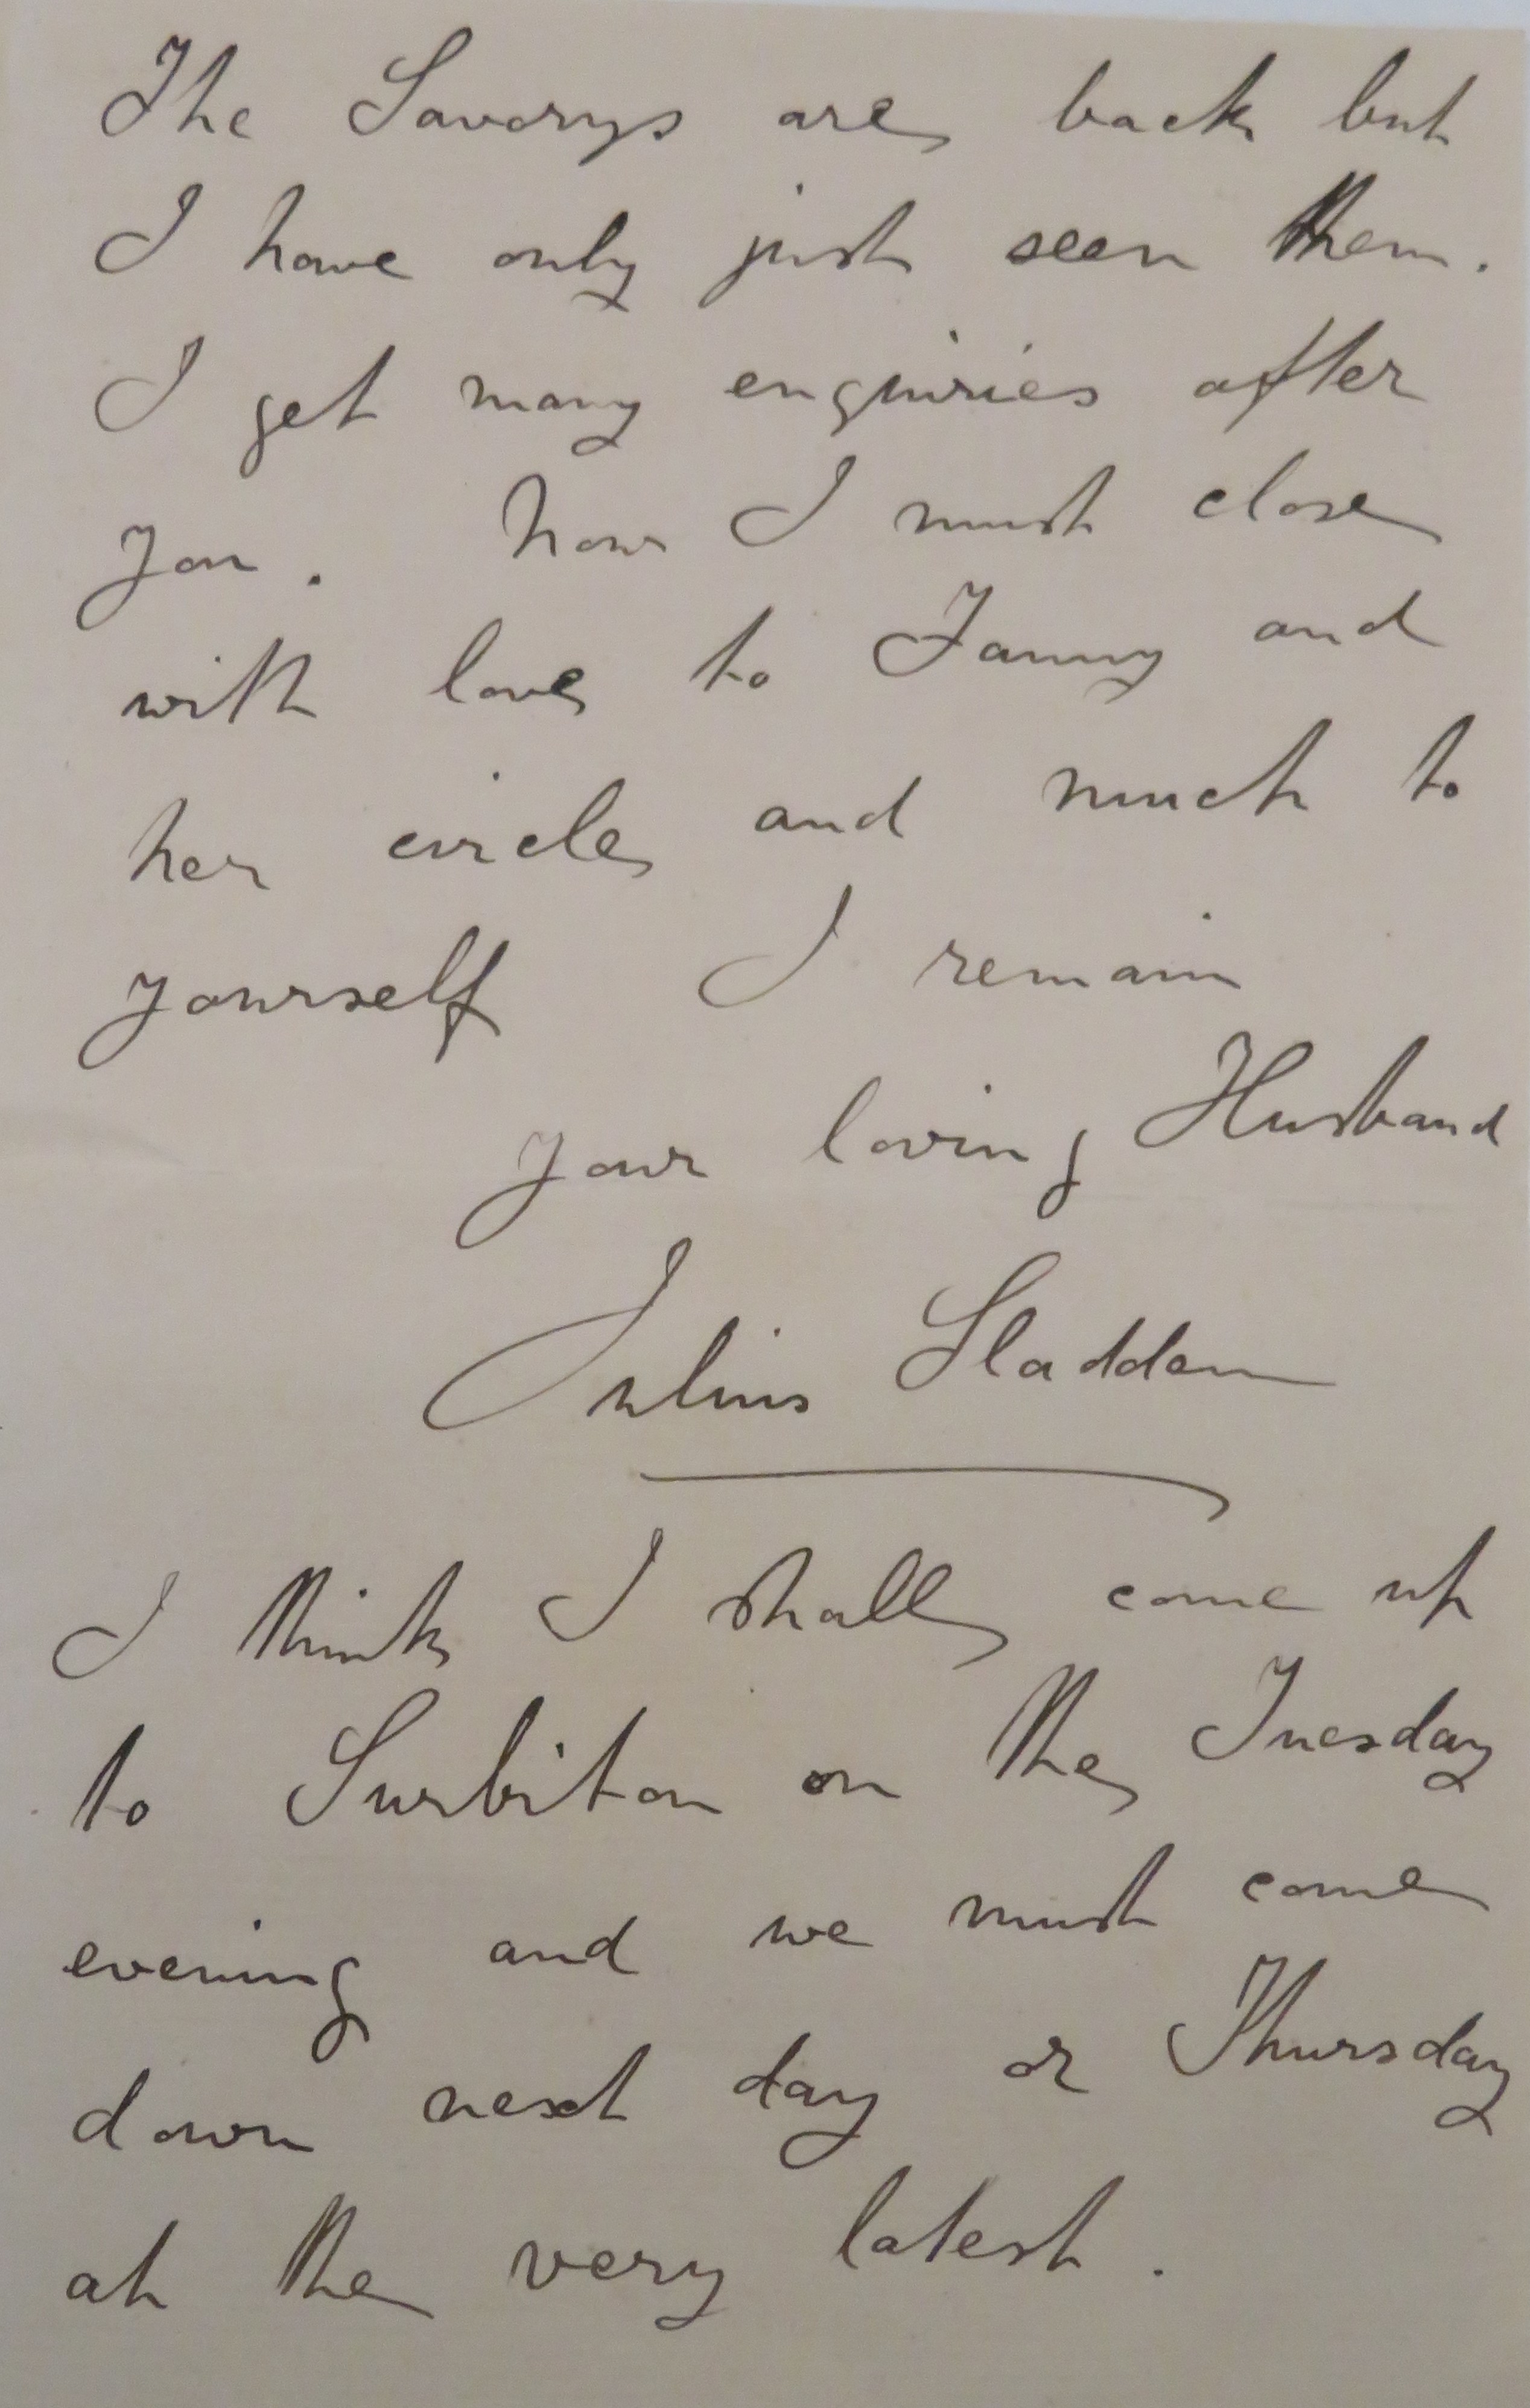 The Savorys are back but
I have only just seen them.
I get many enquiries after
you. Now I must close
with love to Fanny and
her circle and much to
yourself I remain
your loving Husband
Julius Sladden
I think I shall come up
to Surbiton on the Tuesday
evening and we must come
down next day or Thursday
at the very latest.